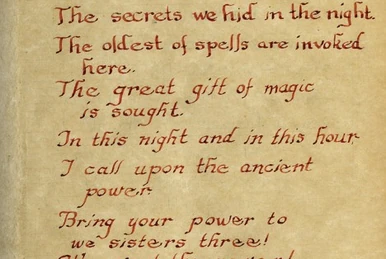 The secrets we hid in the night.
The oldest of spells are invoked
here.
The great gift of magic
is sought.
In this night and in this hour
I call upon the ancient
power
Bring your power to
we sisters three!